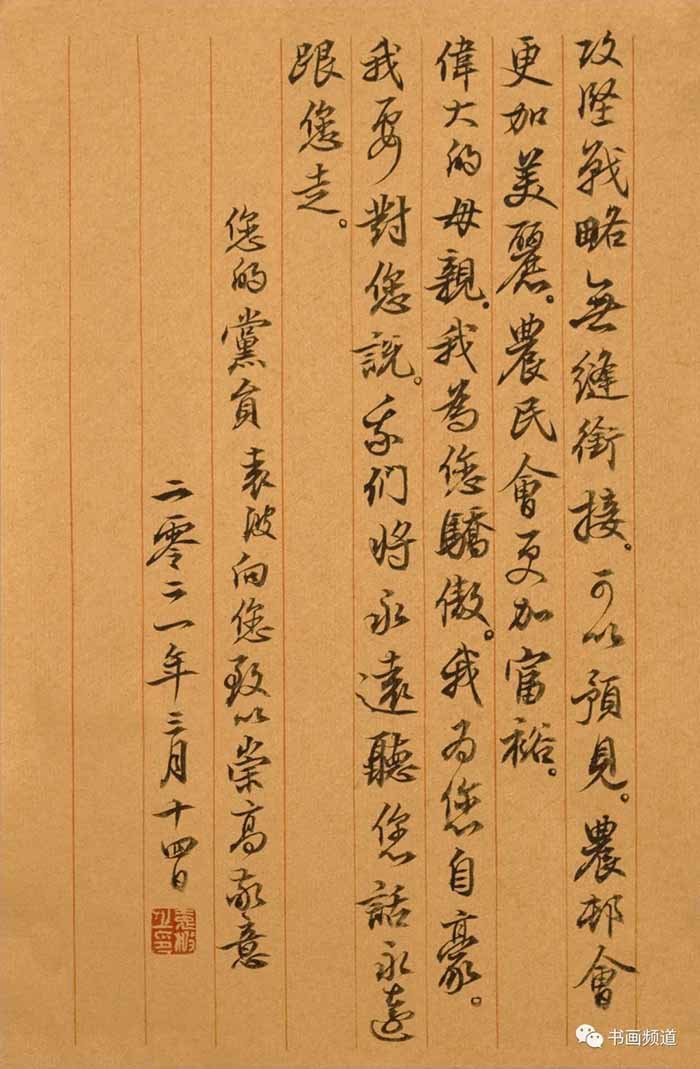 攻堅戰略無縫銜接。可以預見。農邨會
更加美麗。農民會更加富裕。
偉大的母親。我為您驕傲。我为您自豪。
我要對您説。我们将永遠聽您話永遠
跟您走。
您的黨員袁波向您致以崇高敬意
二零二一年三月十四日
书画频道